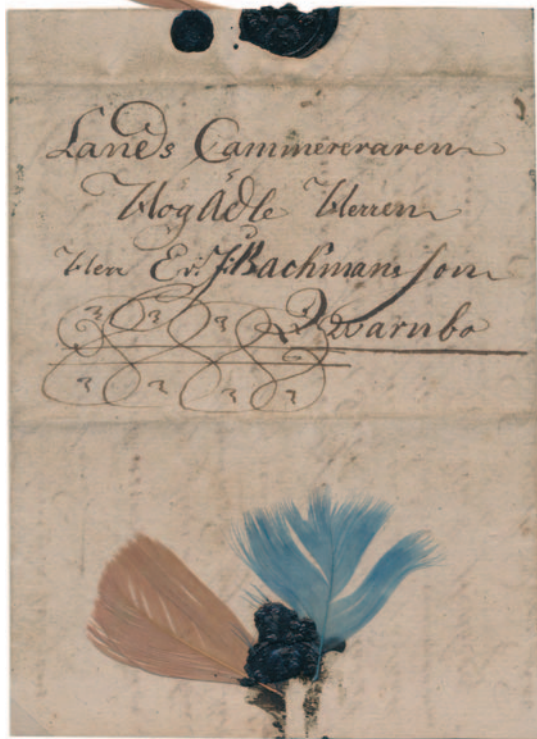 Lands Cammereraren
HögÄdle Herren
Herr E. J. Bachmansson
Qwarnbo